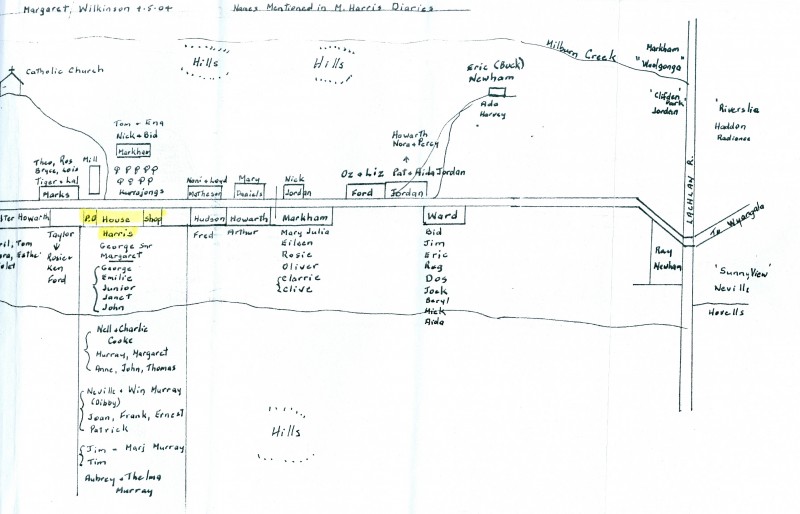 Margaret, Wilkinson 4-5-04
Names Mentioned in M. Harris Diaries
Hills
Hills
Milburn Creek
Catholic Church
Eric (Buck)
Newham
Ada
Harvey
Markham
"Woolgonga"
"Clifden
Park"
Jordan
'Riverslie
Haddon
Radience
Tom + Ena
Nick + Bid
Markham
Kurrajongs
Theo, Ros
Bryce, Lois
Tiger + Lal
Marks
Mill
Noni + Lloyd
Matheson
Mary
Daniels
Nick
Jordan
Howarth
Nora + Percy
Oz + Liz
Ford
Pat + Aida Jordan
Jordan
LACHLAN R.
To Wyangala
lter Howarth
P.O
House
Shop
Hudson
Howarth
Markham
Ward
Taylor
Rosie +
Ken
Ford
Harris
George Snr
Margaret
George
Emilie
Junior
Janet
John
Fred
Arthur
Mary Julia
Eileen
Rosie
Oliver
Clarrie
Clive
Bid
Jim
Eric
Reg
Dos
Jack
Beryl
Mick
Aida
Ray
Newham
'Sunny View'
Neville
Hovells
Nell + Charlie
Cooke
Murray, Margaret
Anne, John, Thomas
Neville + Win Murray
(Dibby)
Joan, Frank, Ernest
Patrick
Jim - Marj Murray
Tim
Aubrey + Thelma
Murray
Hills